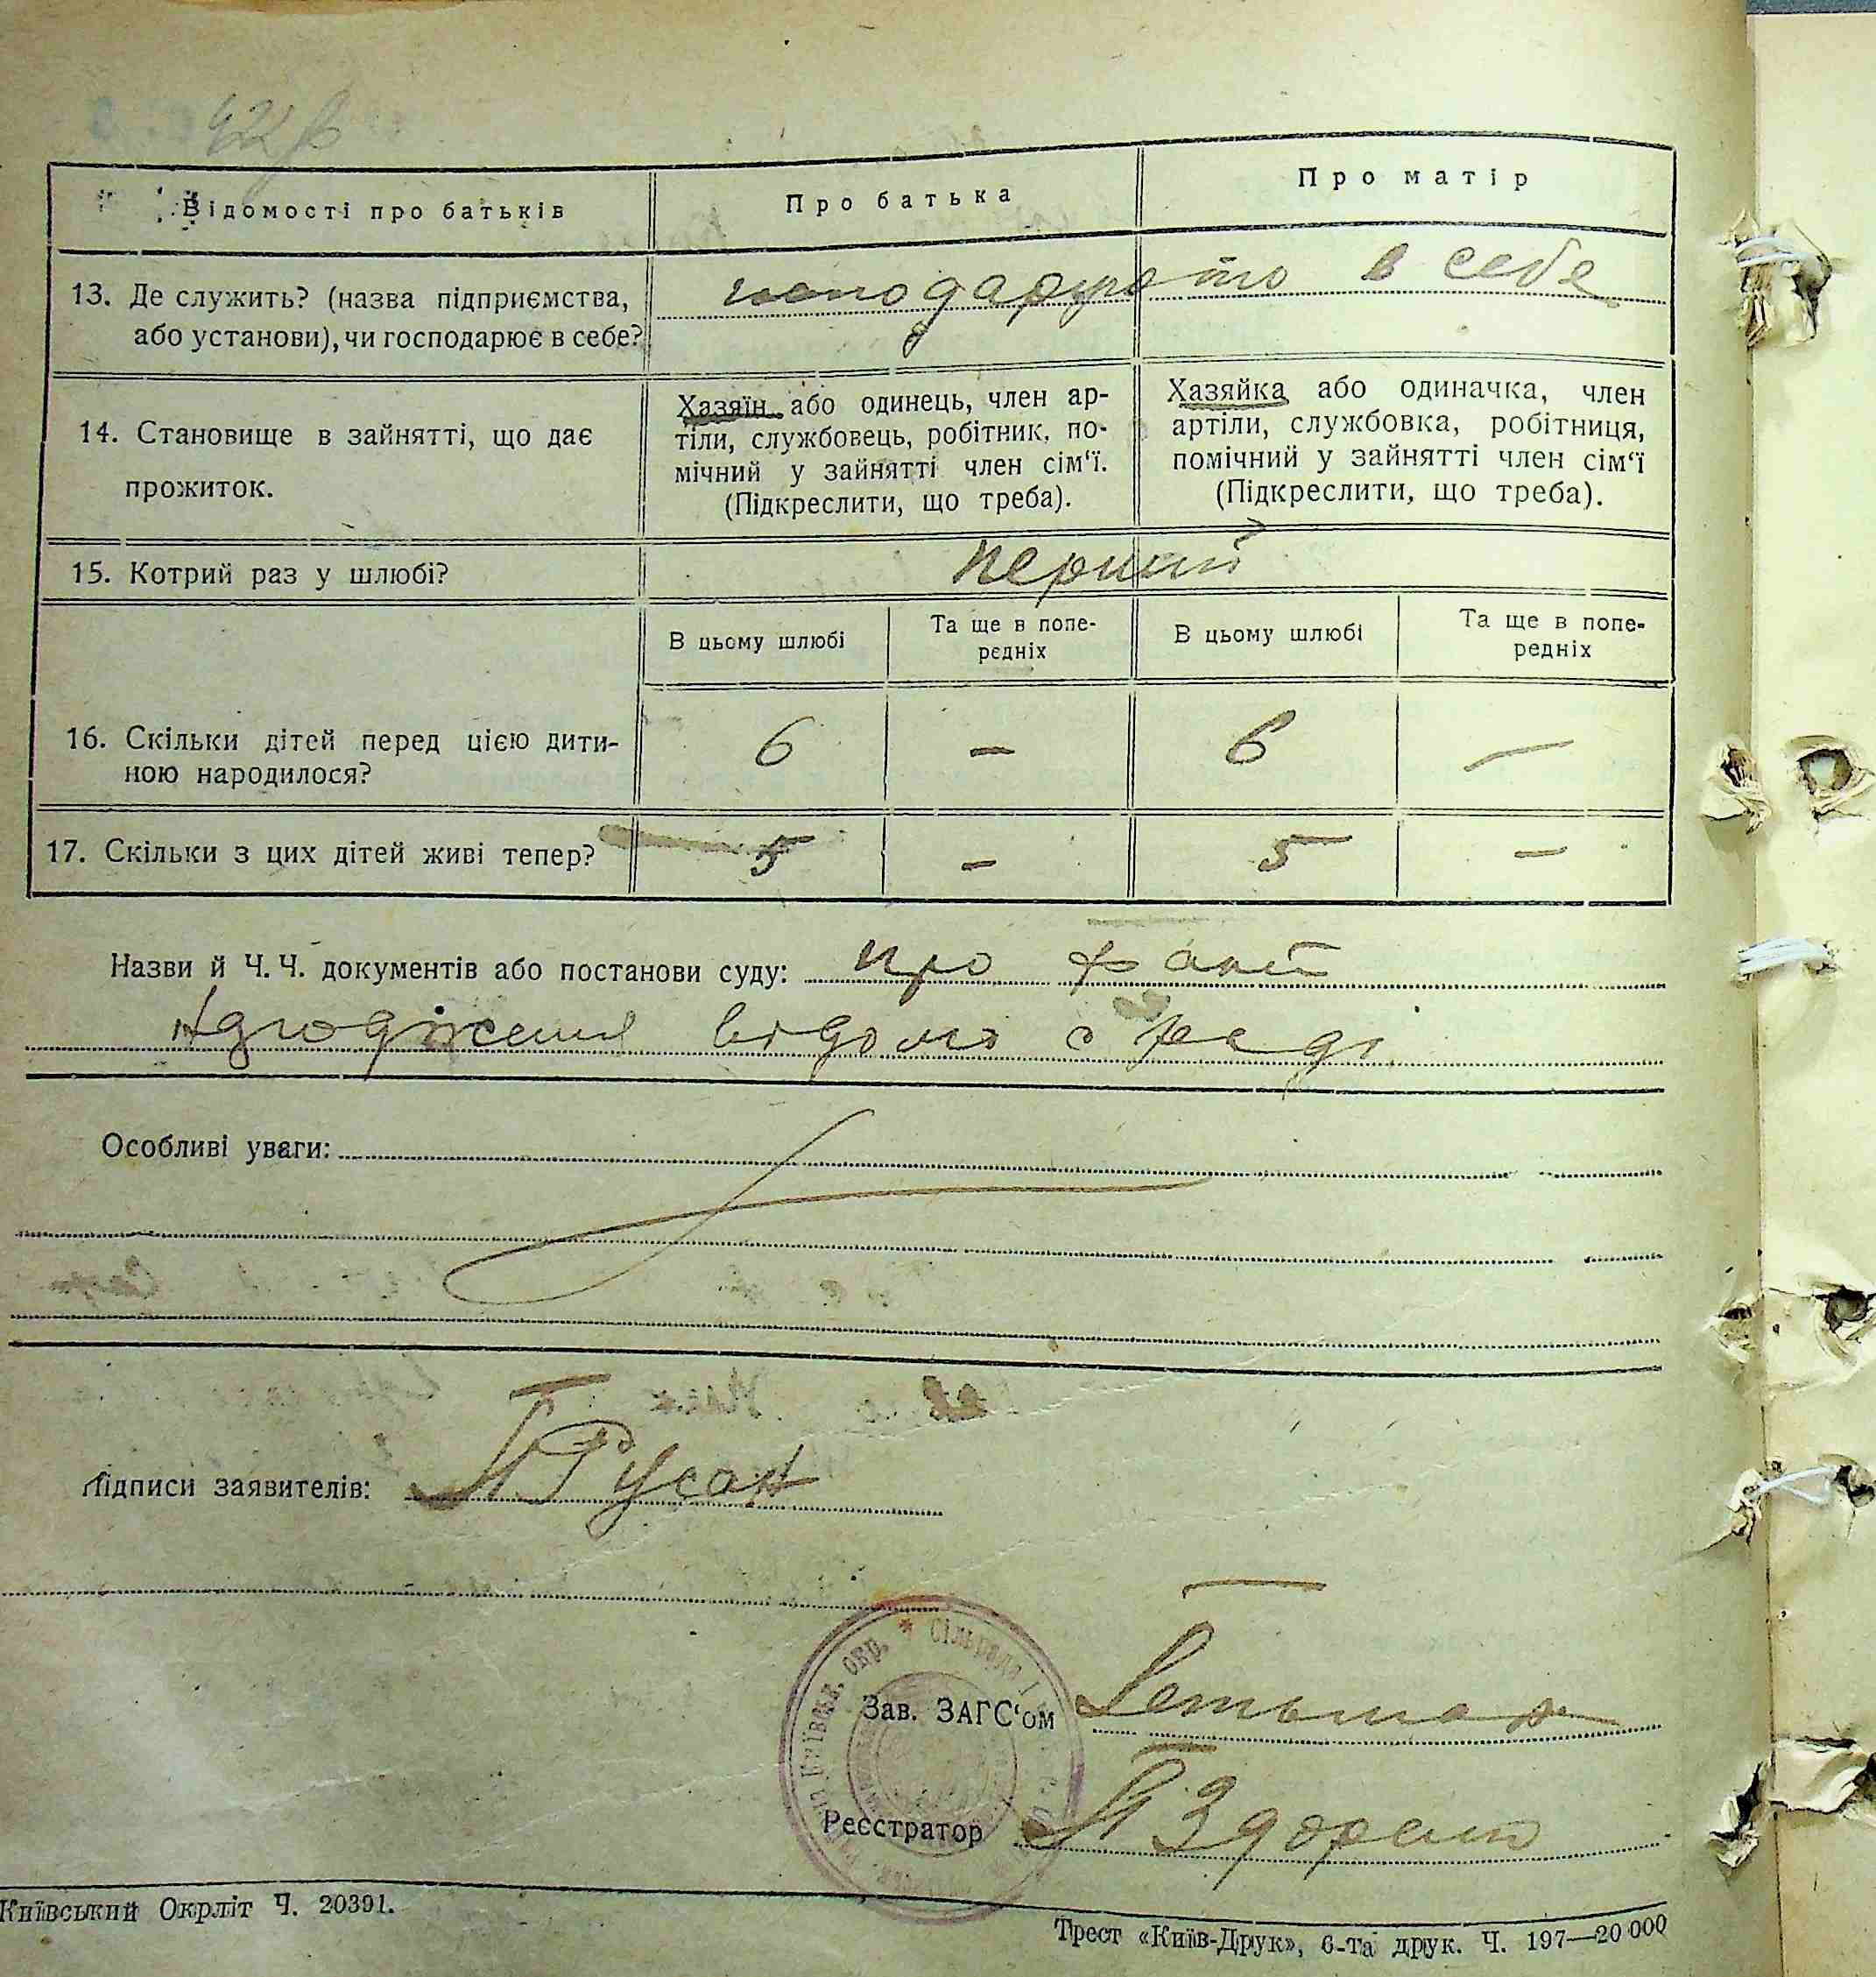 42 в
Відомості про батьків
Про батька
Про матір
13. Де служить? (назва підприємства,
або установи), чи господарює в себе?
господарують в себе
14. Становище в зайнятті, що дає
прожиток.
Хазяїн або одинець, член ар-
тіли, службовець, робітник, по-
мічний у зайнятті член сім‘ї.
(Підкреслити, що треба).
Хазяйка або одиначка, член
артіли, службовка, робітниця,
помічний у зайнятті член сім‘ї
(Підкреслити, що треба).
15. Котрий раз у шлюбі?
перший
В цьому шлюбі
Та ще в попе-
редніх
В цьому шлюбі
Та ще в попе-
редніх
16. Скільки дітей перед цією дити-
ною народилося?
6 — 6 —
17. Скільки з цих дітей живі тепер?
5 — 5 —
Назви й Ч. Ч. документів або постанови суду: про факт
народження відомо с раді
Особливі уваги:
Підписи заявителів: П Русан
Сільрада
Київськ. окр.
Зав. ЗАГС‘ом Гетьман
Реєстратор П
Київський Окрліт Ч. 20391.
Трест «Київ-Друк», 6-та друк. Ч. 197—20 000